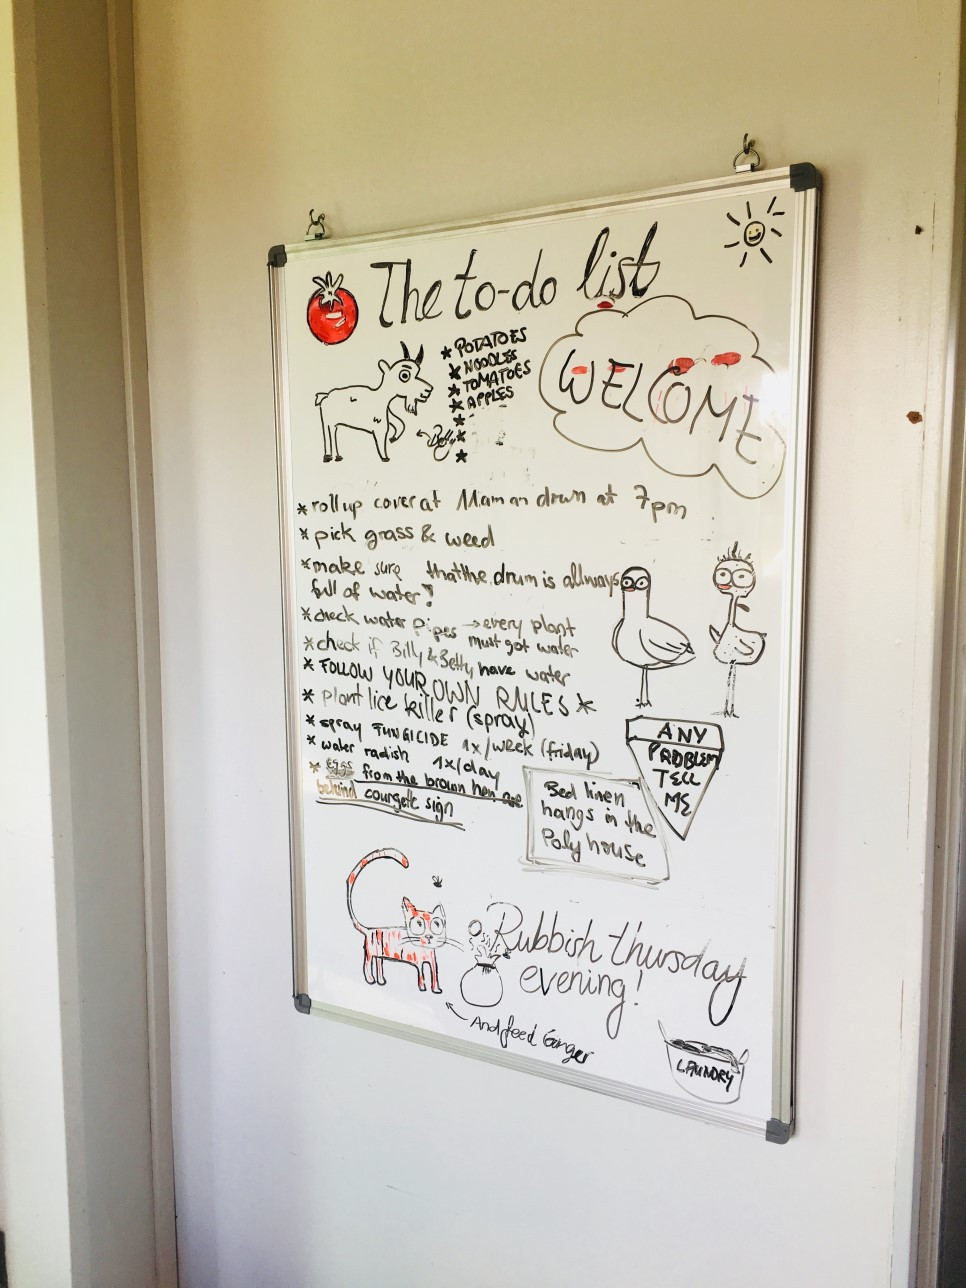 The to-do list
* POTATOES
* NOODLES
* TOMATOES
* APPLES
*
*
*
WELCOME
* roll up cover at Mam an drum at 7pm
* pick grass & weed
* make sure that the drum is allways
full of water!
* check water pipes → every plant
must got water
* check if Billy & Betty have water
* FOLLOW YOUR OWN RULES *
* plant lice killer (spray)
* spray FUNGICIDE 1x/week (friday)
* water radish 1x/day
* eggs from the brown hen are
behind courgette sign
ANY
PROBLEM
TELL
ME
Bed linen
hangs in the
Poly house
Rubbish thursday
evening!
And feed Ginger
LAUNDRY